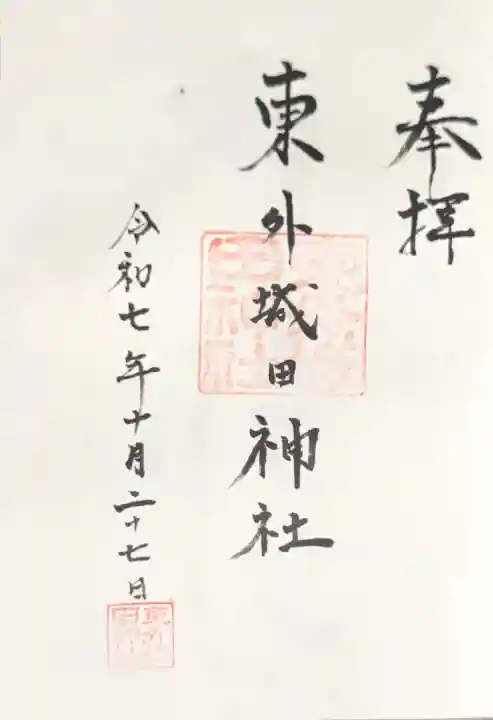 奉拝
東外城田神社
令和七年十月二十七日